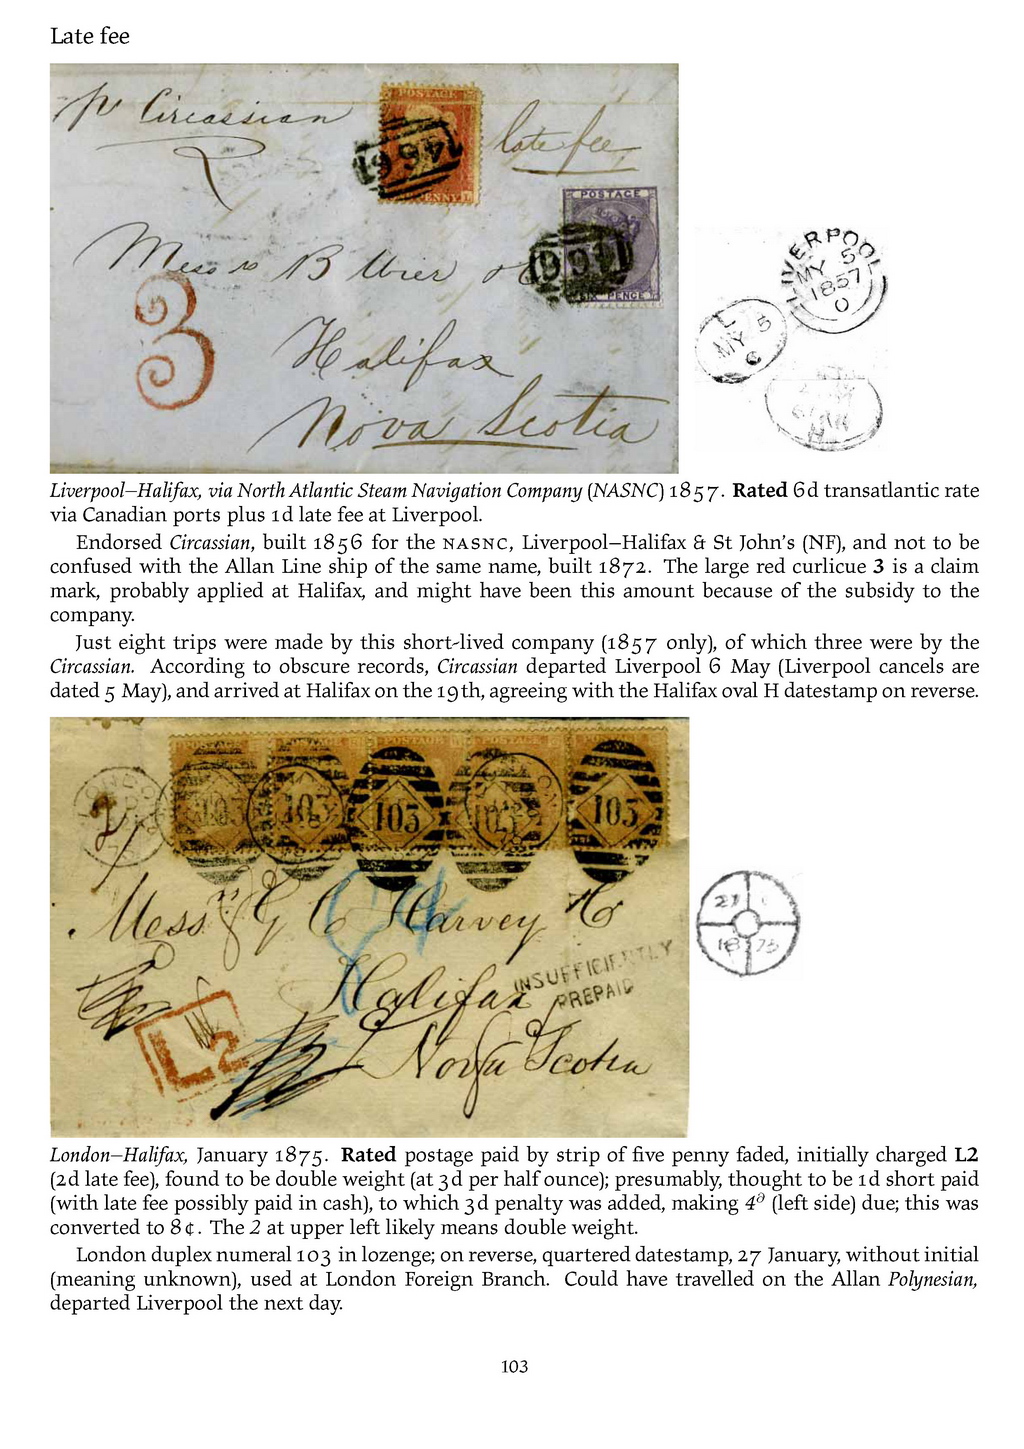 Late fee
pr Circassian
late fee
POSTAGE
466
POSTAGE
466
SIX PENCE
Messrs B Wier & C
3
Halifax
Nova Scotia
LIVERPOOL
MY 5
1857
O
L
MY 5
C
H
Liverpool–Halifax, via North Atlantic Steam Navigation Company (NASNC) 1857. Rated 6d transatlantic rate
via Canadian ports plus 1d late fee at Liverpool.
Endorsed Circassian, built 1856 for the NASNC, Liverpool–Halifax & St John's (NF), and not to be
confused with the Allan Line ship of the same name, built 1872. The large red curlicue 3 is a claim
mark, probably applied at Halifax, and might have been this amount because of the subsidy to the
company.
Just eight trips were made by this short-lived company (1857 only), of which three were by the
Circassian. According to obscure records, Circassian departed Liverpool 6 May (Liverpool cancels are
dated 5 May), and arrived at Halifax on the 19th, agreeing with the Halifax oval H datestamp on reverse.
103 103 103 103 103
2
Messrs G C Harvey & Co
Halifax
INSUFFICIENTLY
PREPAID
L2
Nova Scotia
27
1875
London–Halifax, January 1875. Rated postage paid by strip of five penny faded, initially charged L2
(2d late fee), found to be double weight (at 3d per half ounce); presumably, thought to be 1d short paid
(with late fee possibly paid in cash), to which 3d penalty was added, making 4d (left side) due; this was
converted to 8¢. The 2 at upper left likely means double weight.
London duplex numeral 103 in lozenge; on reverse, quartered datestamp, 27 January, without initial
(meaning unknown), used at London Foreign Branch. Could have travelled on the Allan Polynesian,
departed Liverpool the next day.
103